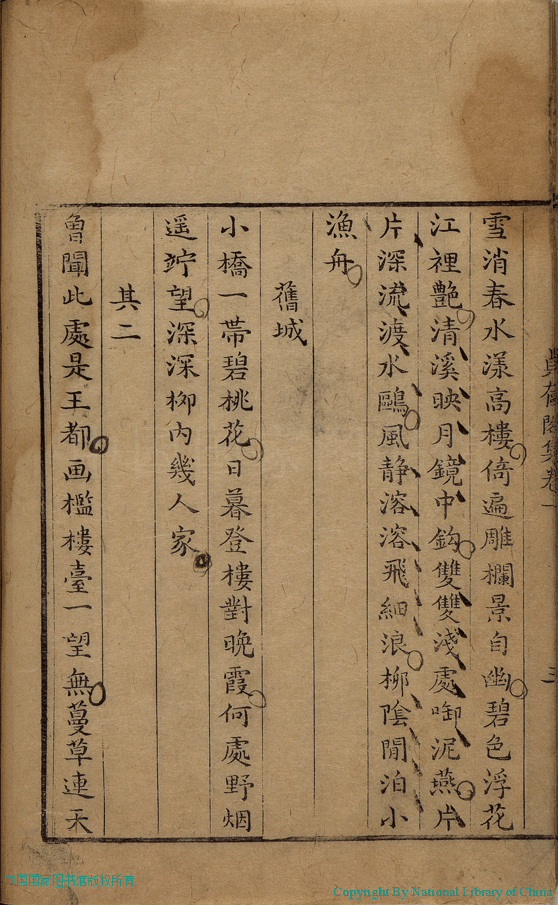 雪消春水漾高樓倚遍雕欄景自幽碧色浮花
江裡艷清溪映月鏡中鈎雙雙淺處啣泥燕片
片深流渡水鷗風静溶溶飛細浪柳陰閒泊小
漁舟
舊城
小橋一帶碧桃花日暮登樓對晚霞何處野烟
遥竚望深深柳内幾人家
其二
曾聞此處是王都画檻樓臺一望無蔓草連天
集卷一
三
中国国家图书馆版权所有
Copyright By National Library of China